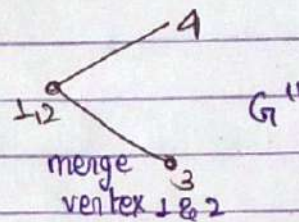 4
1,2
G"
merge
3
vertex 1 & 2